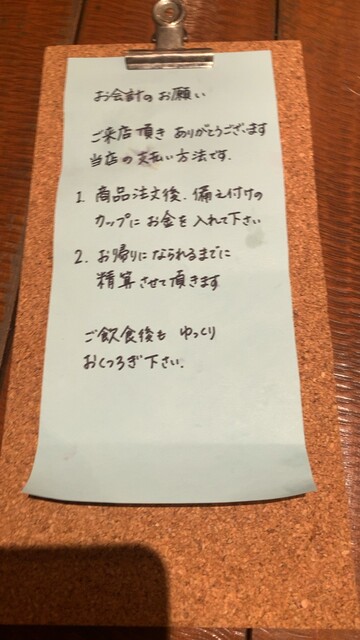 お会計のお願い
ご来店頂き ありがとうございます
当店の支払い方法です.
1. 商品注文後、備え付けの
カップに お金を 入れて下さい
2. お帰りになられるまでに
精算させて頂きます
ご飲食後も ゆっくり
おくつろぎ下さい.